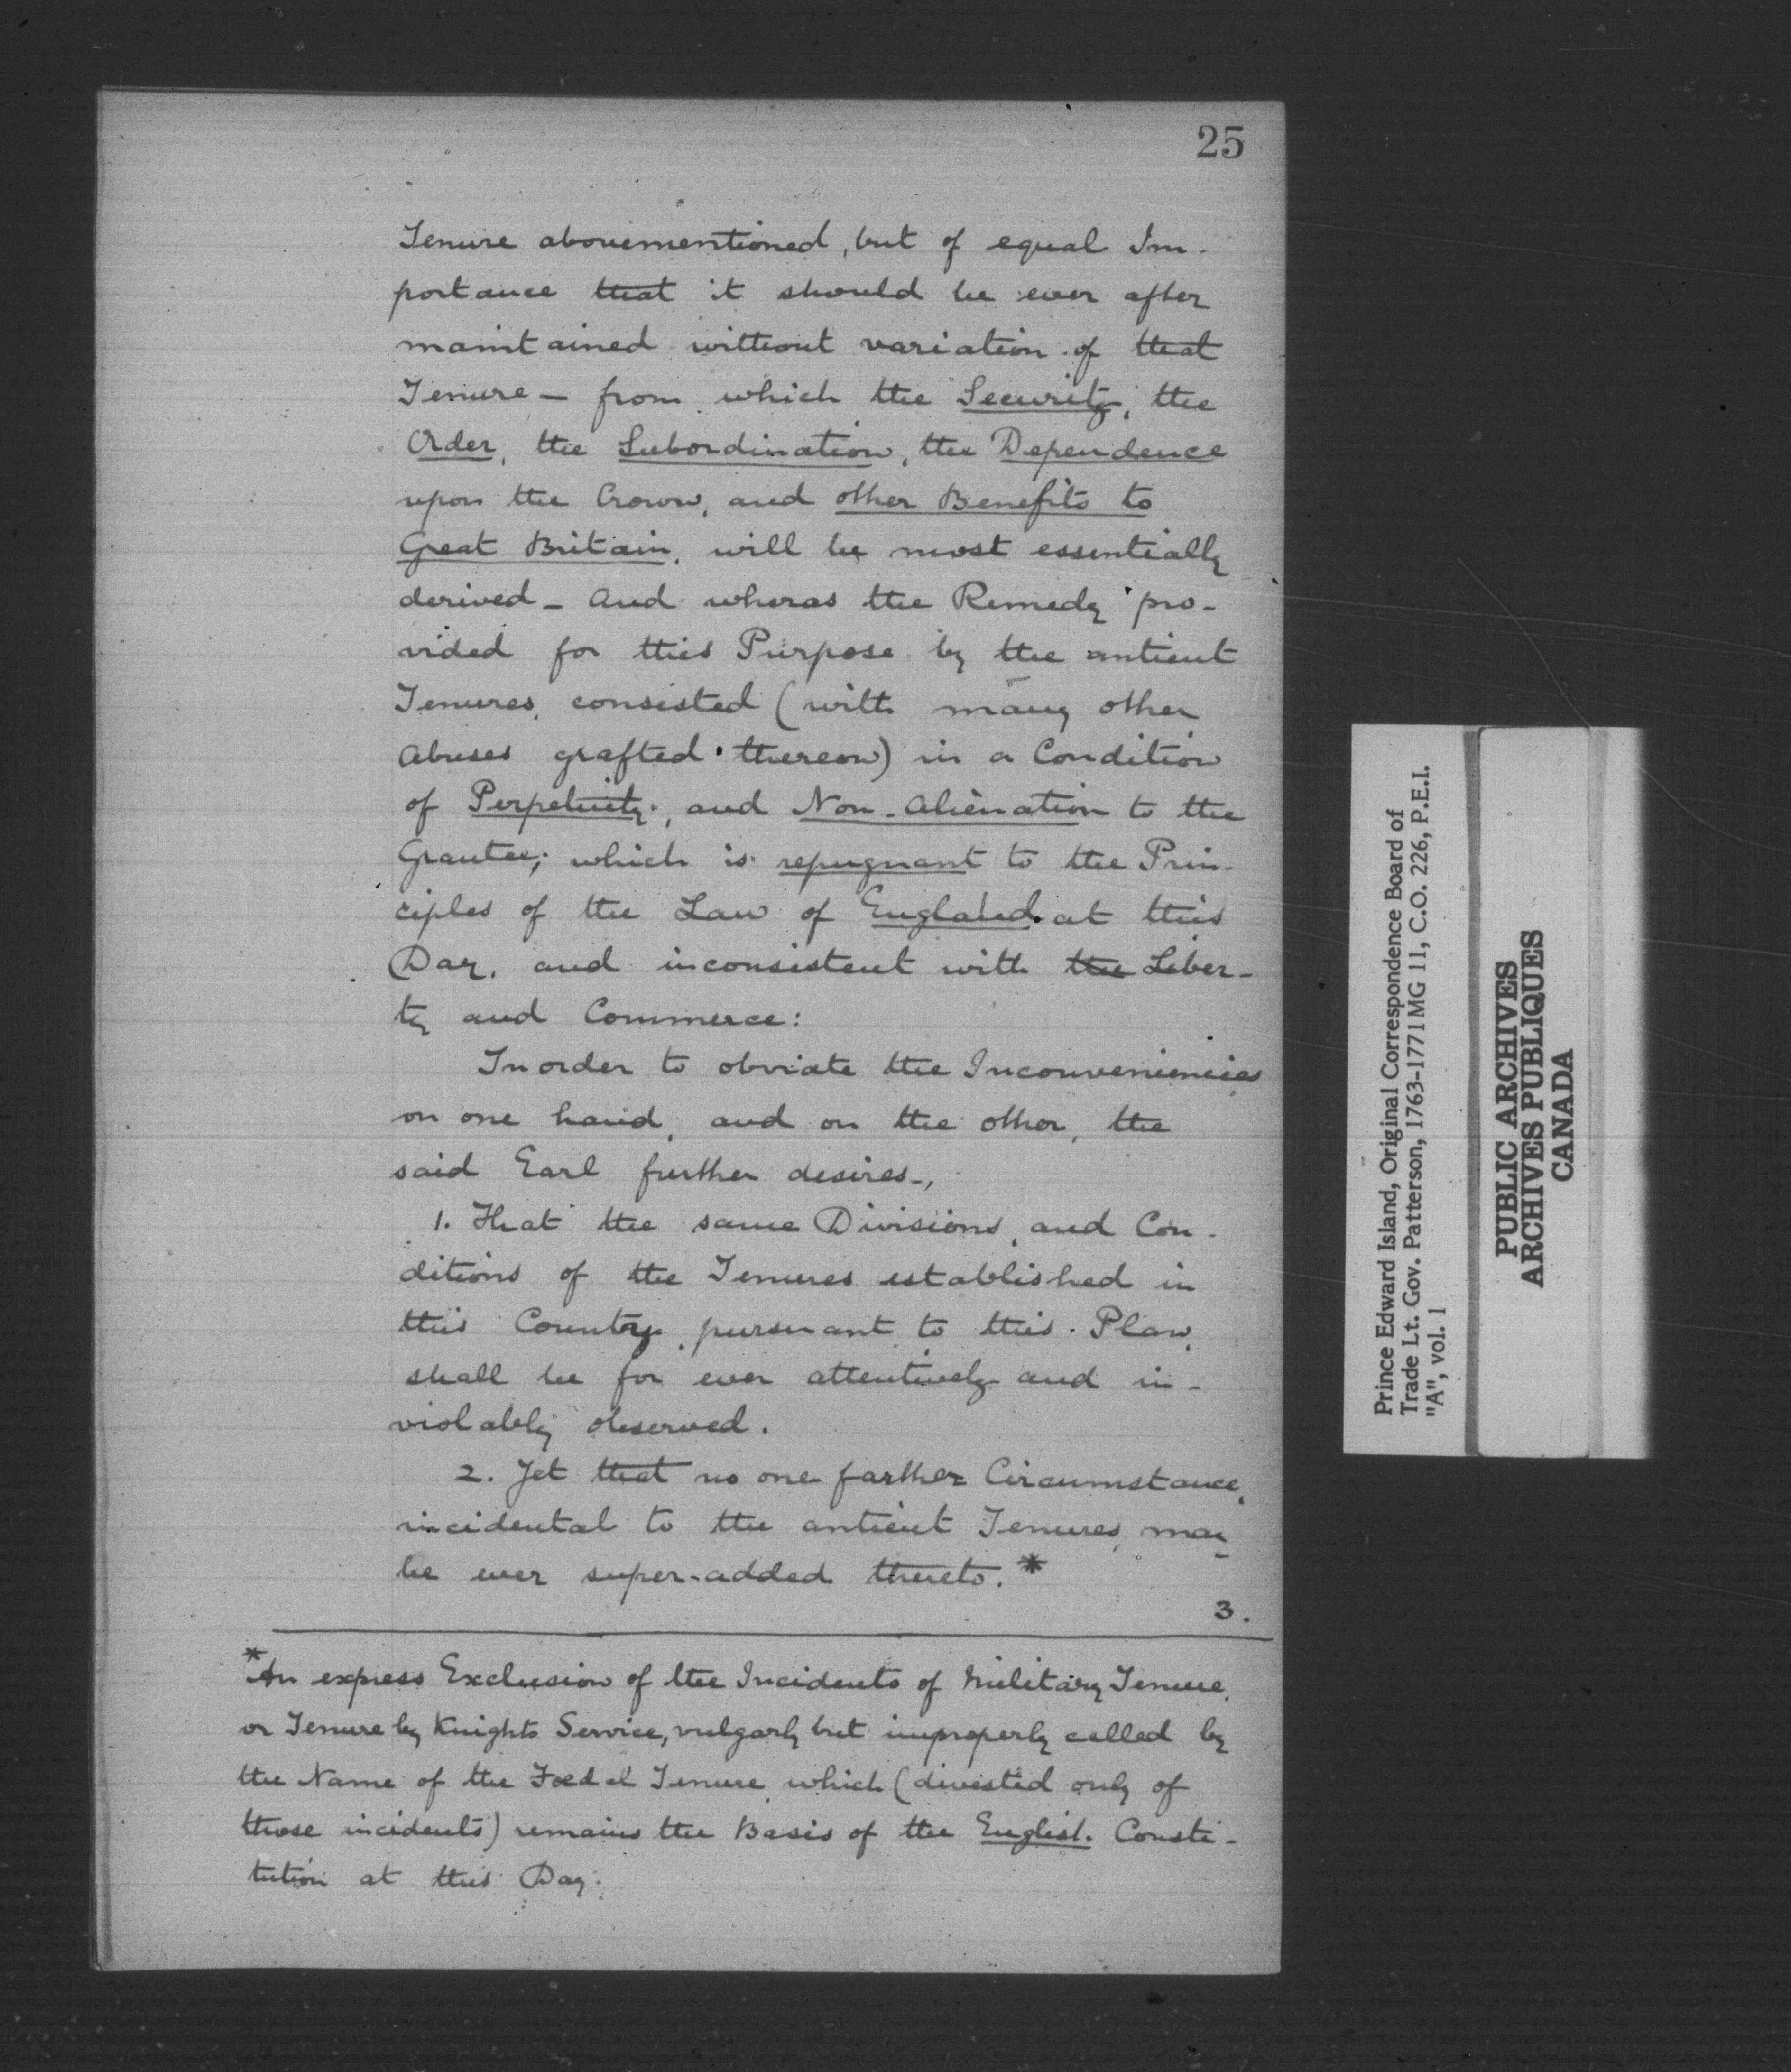 25
Tenure abovementioned, but of equal Im-
portance that it should be ever after
maintained without variation of that
Tenure - from which the Security, the
Order, the Subordination, the Dependence
upon the Crown, and other Benefits to
Great Britain, will be most essentially
derived - And wheras the Remedy pro-
vided for this Purpose by the antient
Tenures, consisted (with many other
Abuses grafted thereon) in a Condition
of Perpetuity, and Non-Alienation to the
Grantee; which is repugnant to the Prin-
ciples of the Law of England at this
Day, and inconsistent with the Liber-
ty and Commerce:
In order to obviate the Inconveniencies
on one hand, and on the other, the
said Earl further desires.,
1. That the same Divisions, and Con-
ditions of the Tenures established in
this Country pursuant to this Plan,
shall be for ever attentively and in-
violably observed.
2. Yet that no one farther Circumstance,
incidental to the antient Tenures, may
be ever super-added thereto. *
3.
*An express Exclusion of the Incidents of Military Tenure,
or Tenure by Knights Service, vulgarly but improperly called by
the Name of the Foedal Tenure, which (divested only of
those incidents) remains the Basis of the English Consti-
tution at this Day.
Prince Edward Island, Original Correspondence Board of
Trade Lt. Gov. Patterson, 1763-1771 MG 11, C.O. 226, P.E.I.
"A", vol. 1
PUBLIC ARCHIVES
ARCHIVES PUBLIQUES
CANADA